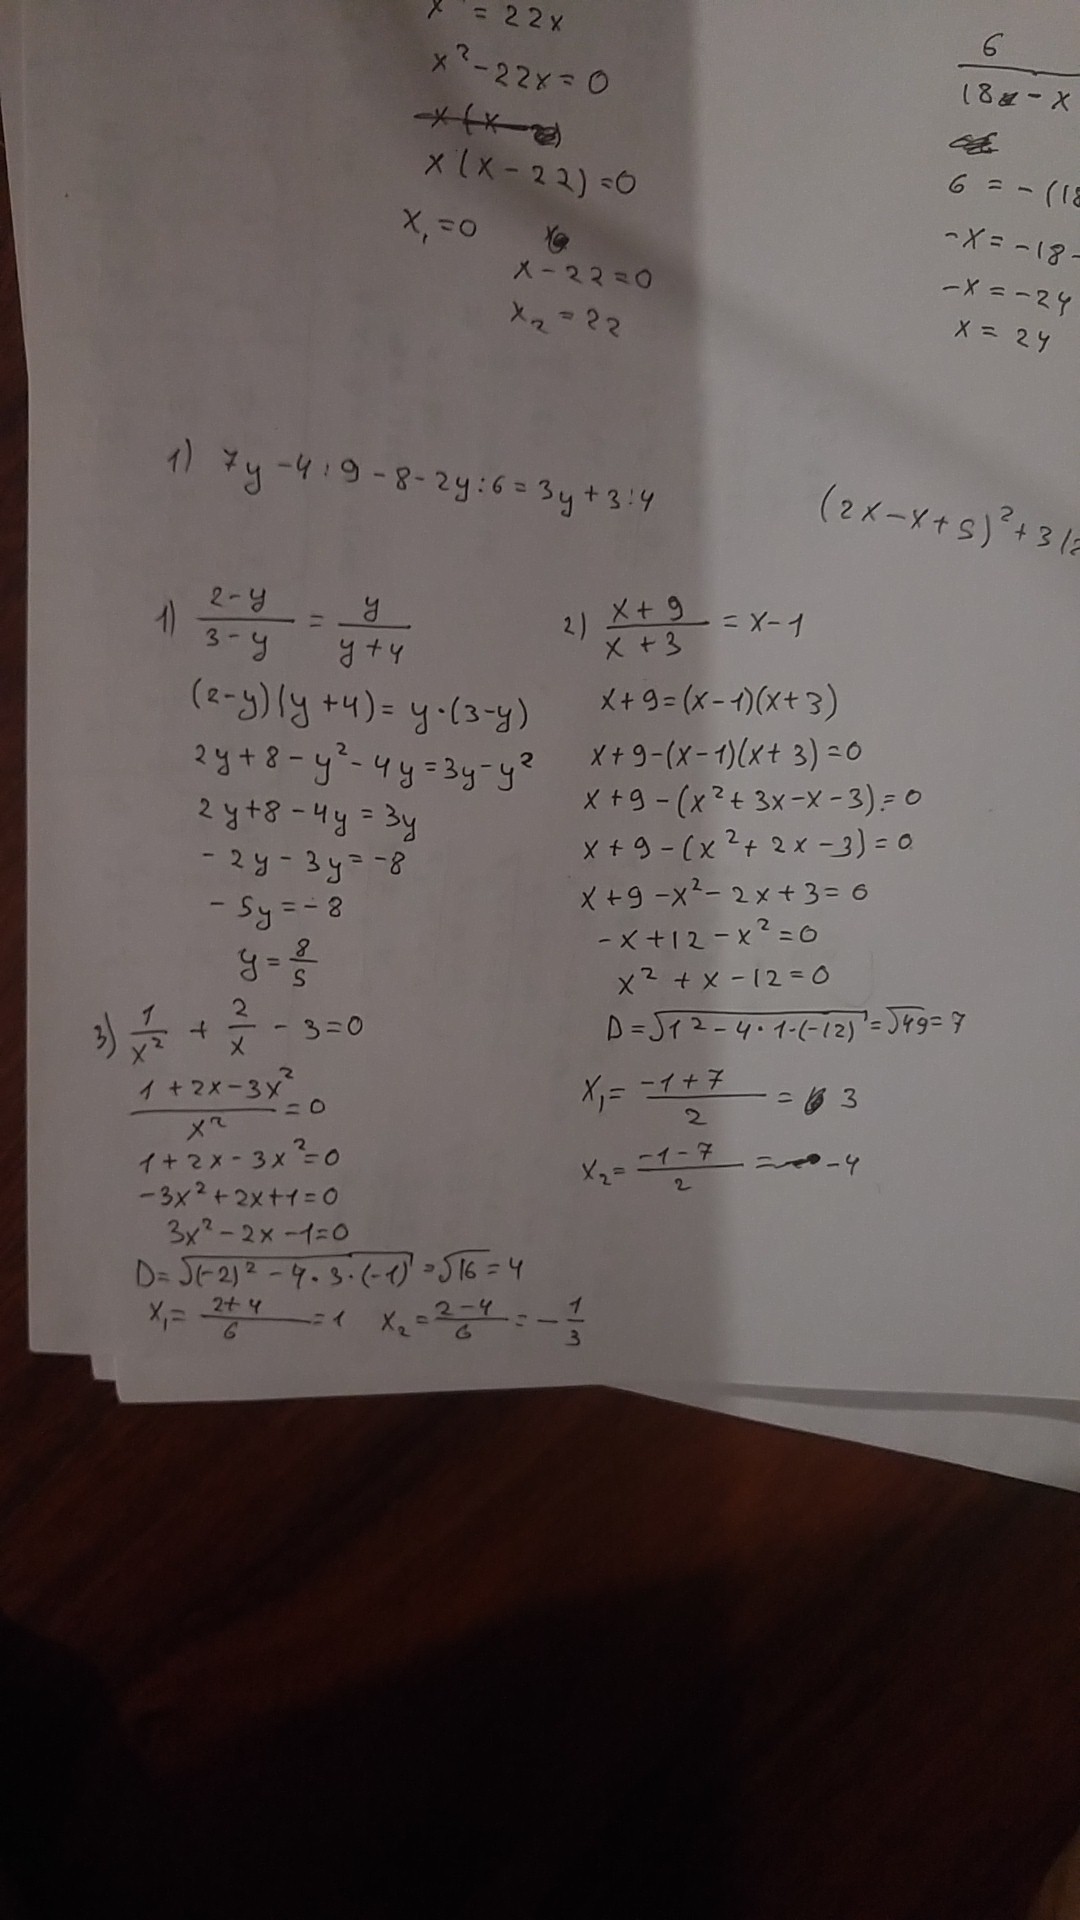 x = 22x
x² - 22x = 0
x(x - 22) = 0
x₁ = 0
x - 22 = 0
x₂ = 22
6
18 - x
6 = -(18
-x = -18 -
-x = -24
x = 24
1) 7y - 4 : 9 - 8 - 2y : 6 = 3y + 3 : 4
(2x - x + 5)² + 3(
1) (2-y)/(3-y) = y/(y+4)
(2-y)(y+4) = y·(3-y)
2y + 8 - y² - 4y = 3y - y²
2y + 8 - 4y = 3y
- 2y - 3y = -8
- 5y = -8
y = 8/5
2) (x+9)/(x+3) = x - 1
x + 9 = (x-1)(x+3)
x + 9 - (x-1)(x+3) = 0
x + 9 - (x² + 3x - x - 3) = 0
x + 9 - (x² + 2x - 3) = 0
x + 9 - x² - 2x + 3 = 0
- x + 12 - x² = 0
x² + x - 12 = 0
D = √(1² - 4·1·(-12)) = √49 = 7
x₁ = (-1+7)/2 = 3
x₂ = (-1-7)/2 = -4
3) 1/x² + 2/x - 3 = 0
(1 + 2x - 3x²)/x² = 0
1 + 2x - 3x² = 0
-3x² + 2x + 1 = 0
3x² - 2x - 1 = 0
D = √((-2)² - 4·3·(-1)) = √16 = 4
x₁ = (2+4)/6 = 1 x₂ = (2-4)/6 = -1/3